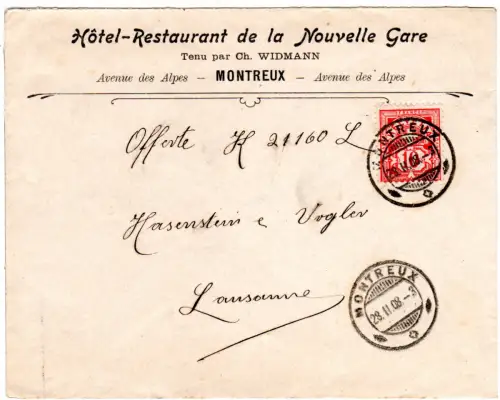 Hôtel-Restaurant de la Nouvelle Gare
Tenu par Ch. WIDMANN
Avenue des Alpes — MONTREUX — Avenue des Alpes
Offerte H 21160 L
MONTREUX
10
Hasenstein e Vogler
MONTREUX
28.II.08.-3
Lausanne